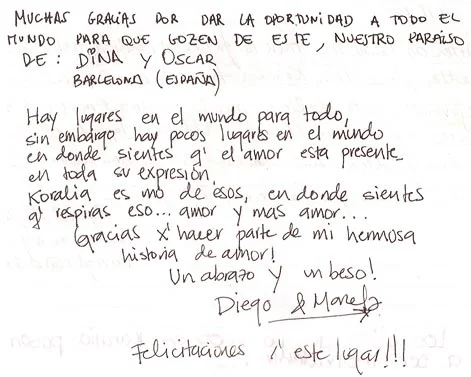 MUCHAS GRACIAS POR DAR LA OPORTUNIDAD A TODO EL
MUNDO PARA QUE GOZEN DE ESTE, NUESTRO PARAISO
DE: DINA Y OSCAR
BARCELONA (ESPAÑA)
Hay lugares en el mundo para todo,
sin embargo hay pocos lugares en el mundo
en donde sientes q' el amor esta presente
en toda su expresión.
Koralia es uno de esos, en donde sientes
q' respiras eso... amor y mas amor...
Gracias x' hacer parte de mi hermosa
historia de amor!
Un abrazo y un beso!
Diego &
Felicitaciones x' este lugar!!!